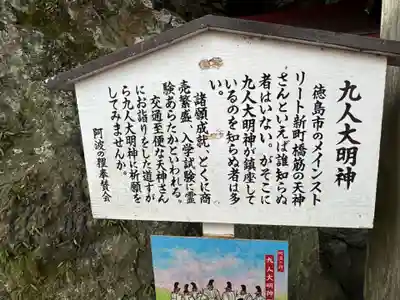 九人大明神
徳島市のメインスト
リート新町橋筋の天神
さんといえば誰知らぬ
者はいない。がそこに
九人大明神が鎮座して
いるのを知らぬ者は多
い。
諸願成就、とくに商
売繁盛、入学試験に霊
験あらたかといわれる。
交通至便な天神さん
にお詣りをした道すが
ら九人大明神に祈願を
してみませんか。
阿波の狸奉賛会
九人大明神